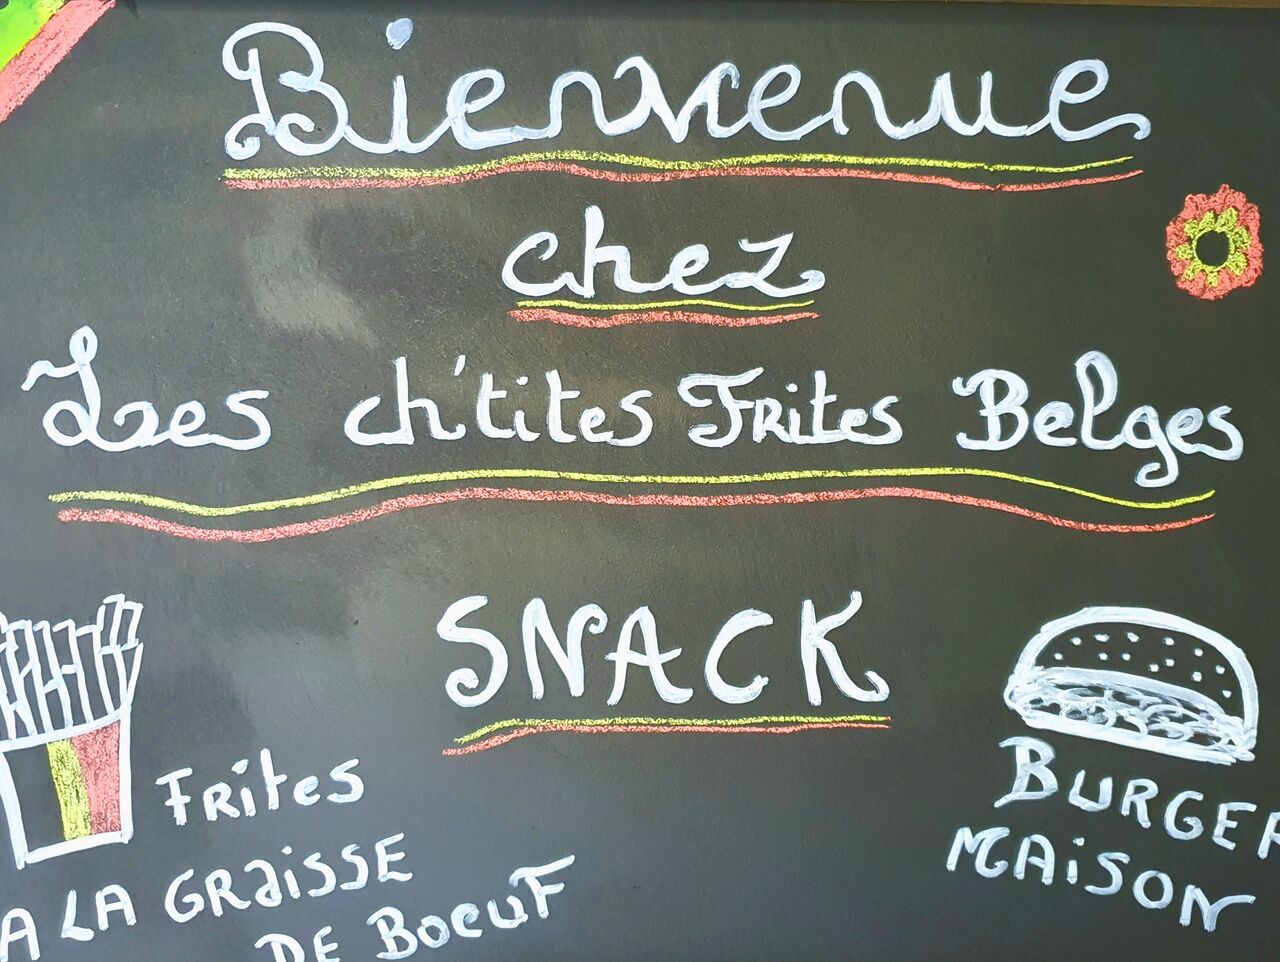 Bienvenue
chez
Les ch'tites Frites Belges
SNACK
Frites
A LA GRaiSSE
DE BOEUF
BURGER
MAiSON